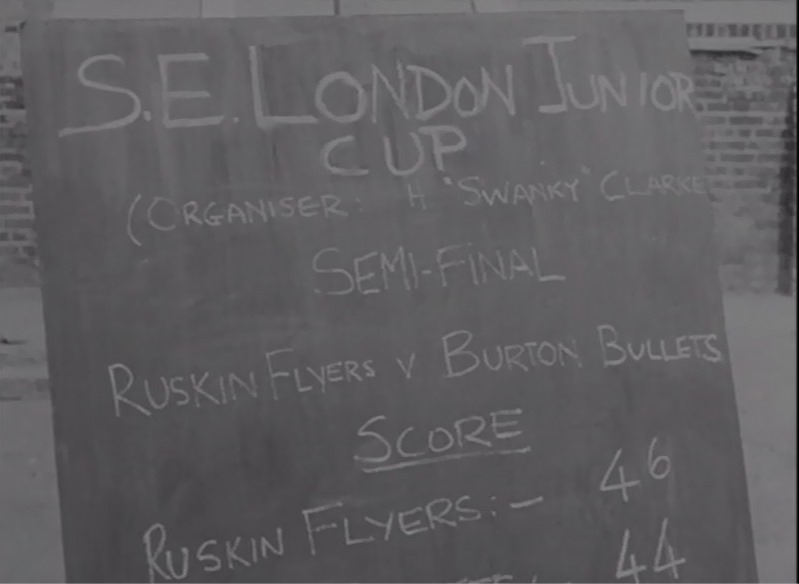 S.E. LONDON JUNIOR
CUP
(ORGANISER: H "SWANKY" CLARKE
SEMI-FINAL
RUSKIN FLYERS V BURTON BULLETS
SCORE
RUSKIN FLYERS:- 46
44